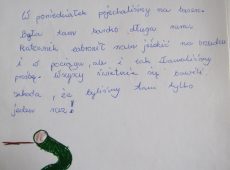 W poniedziałek pojechaliśmy na basen.
Była tam bardzo długa rura.
Ratownik zabronił nam jeździć na brzuchu
i w pociągu, ale i tak
próby. Wszyscy świetnie się bawili
szkoda, że byliśmy tam tylko
jeden raz!